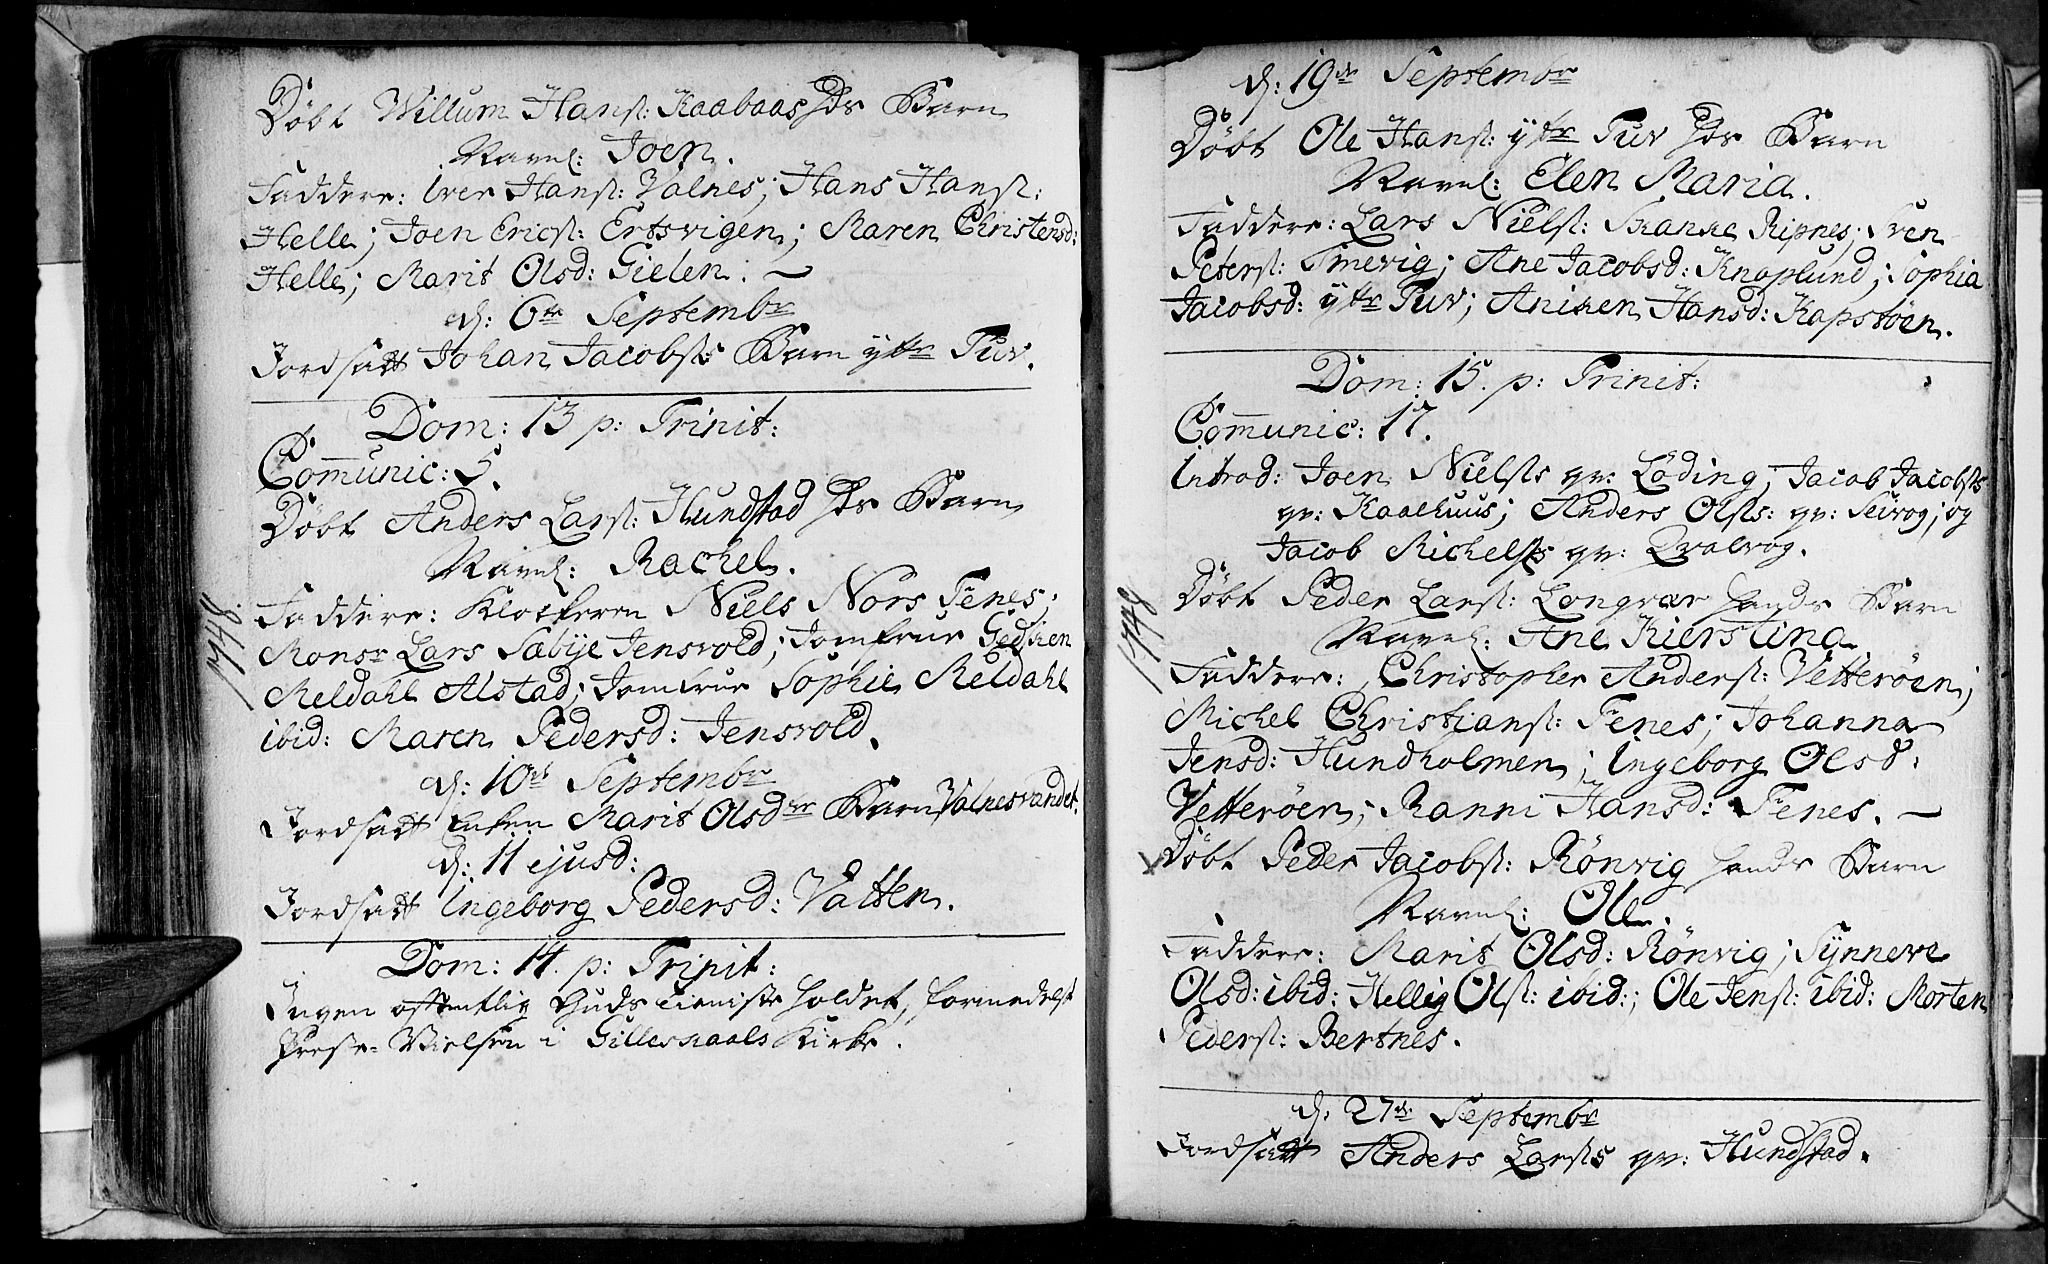 Döbt Willum Hansl: Kaabaas Hs Barn
Navnl: Joen.
Faddere: Iver Hansl: Valnes; Hans Hansl:
Helle; Joen Ericsl: Ertsvigen; Maren Christensd:
Helle; Marit Olsd: Gielen: —
d: 6te Septembr
Jordsatt Johan Jacobsls Barn yttr Tuv.
Dom: 13 p: Trinit:
Com̅unic: 5.
Döbt Anders Larsl: Hundstad Hs Barn
Navnl: Rachel.
Faddere: Klockeren Niels Nors Fenes;
Monsr Lars Sæbye Jensvold; Jomfrue Gedsken
Meldahl Alstad; Jomfrue Sophie Meldahl
ibid: Maren Pedersd: Jensvold.
1748.
d: 10de Septembr
Jordsatt Enken Marit Olsdtr Barn Valnesvandet.
d: 11 ejusd:
Jordsatt Ingeborg Pedersd: Vatten.
Dom: 14. p: Trinit:
Ingen offentlig Guds tieniste holdet, formedelst
Præste-Vielsen i Gilleskaals Kirke.
d: 19de Septembr
Döbt Ole Hansl: yttr Tuv Hs Barn
Navnl: Elen Maria.
Faddere: Lars Nielsl: Skanke Ripnes; Sven
Petersl: Tmevig; Ane Jacobsd: Knaplund; Sophia
Jacobsd: yttr Tuv; Aniken Hansd: Kapstöen.
Dom: 15. p: Trinit:
Com̅unic: 17.
Introd: Joen Nielsls qv: Löding; Jacob Jacobsls
qv: Kaalhuus; Anders Olsls: qv: Seivog; og
Jacob Michelsls qv: Qvalvog.
1748
Döbt Peder Larsl: Longvær hands Barn
Navnl: Ane Kierstina
Faddere: Christopher Andersl: Vetteröen;
Michel Christiansl: Fenes; Johanna
Jensd: Hundholmen; Ingeborg Olsd:
Vetteröen; Ranni Hansd: Fenes. —
Döbt Peder Jacobsl: Rönvig hands Barn
Navnl: Ole.
Faddere: Marit Olsd: Rönvig; Synneve
Olsd: ibid: Hellig Olsl: ibid:; Ole Jensl: ibid: Morten
Pedersl: Bertnes.
d. 27de Septembr
Jordsatt Anders Larsls qv: Hundstad.